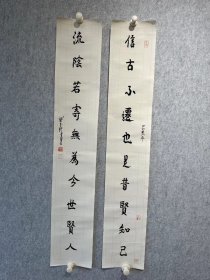 信古不遷也是昔賢知己
流陰若寄無為今世賢人